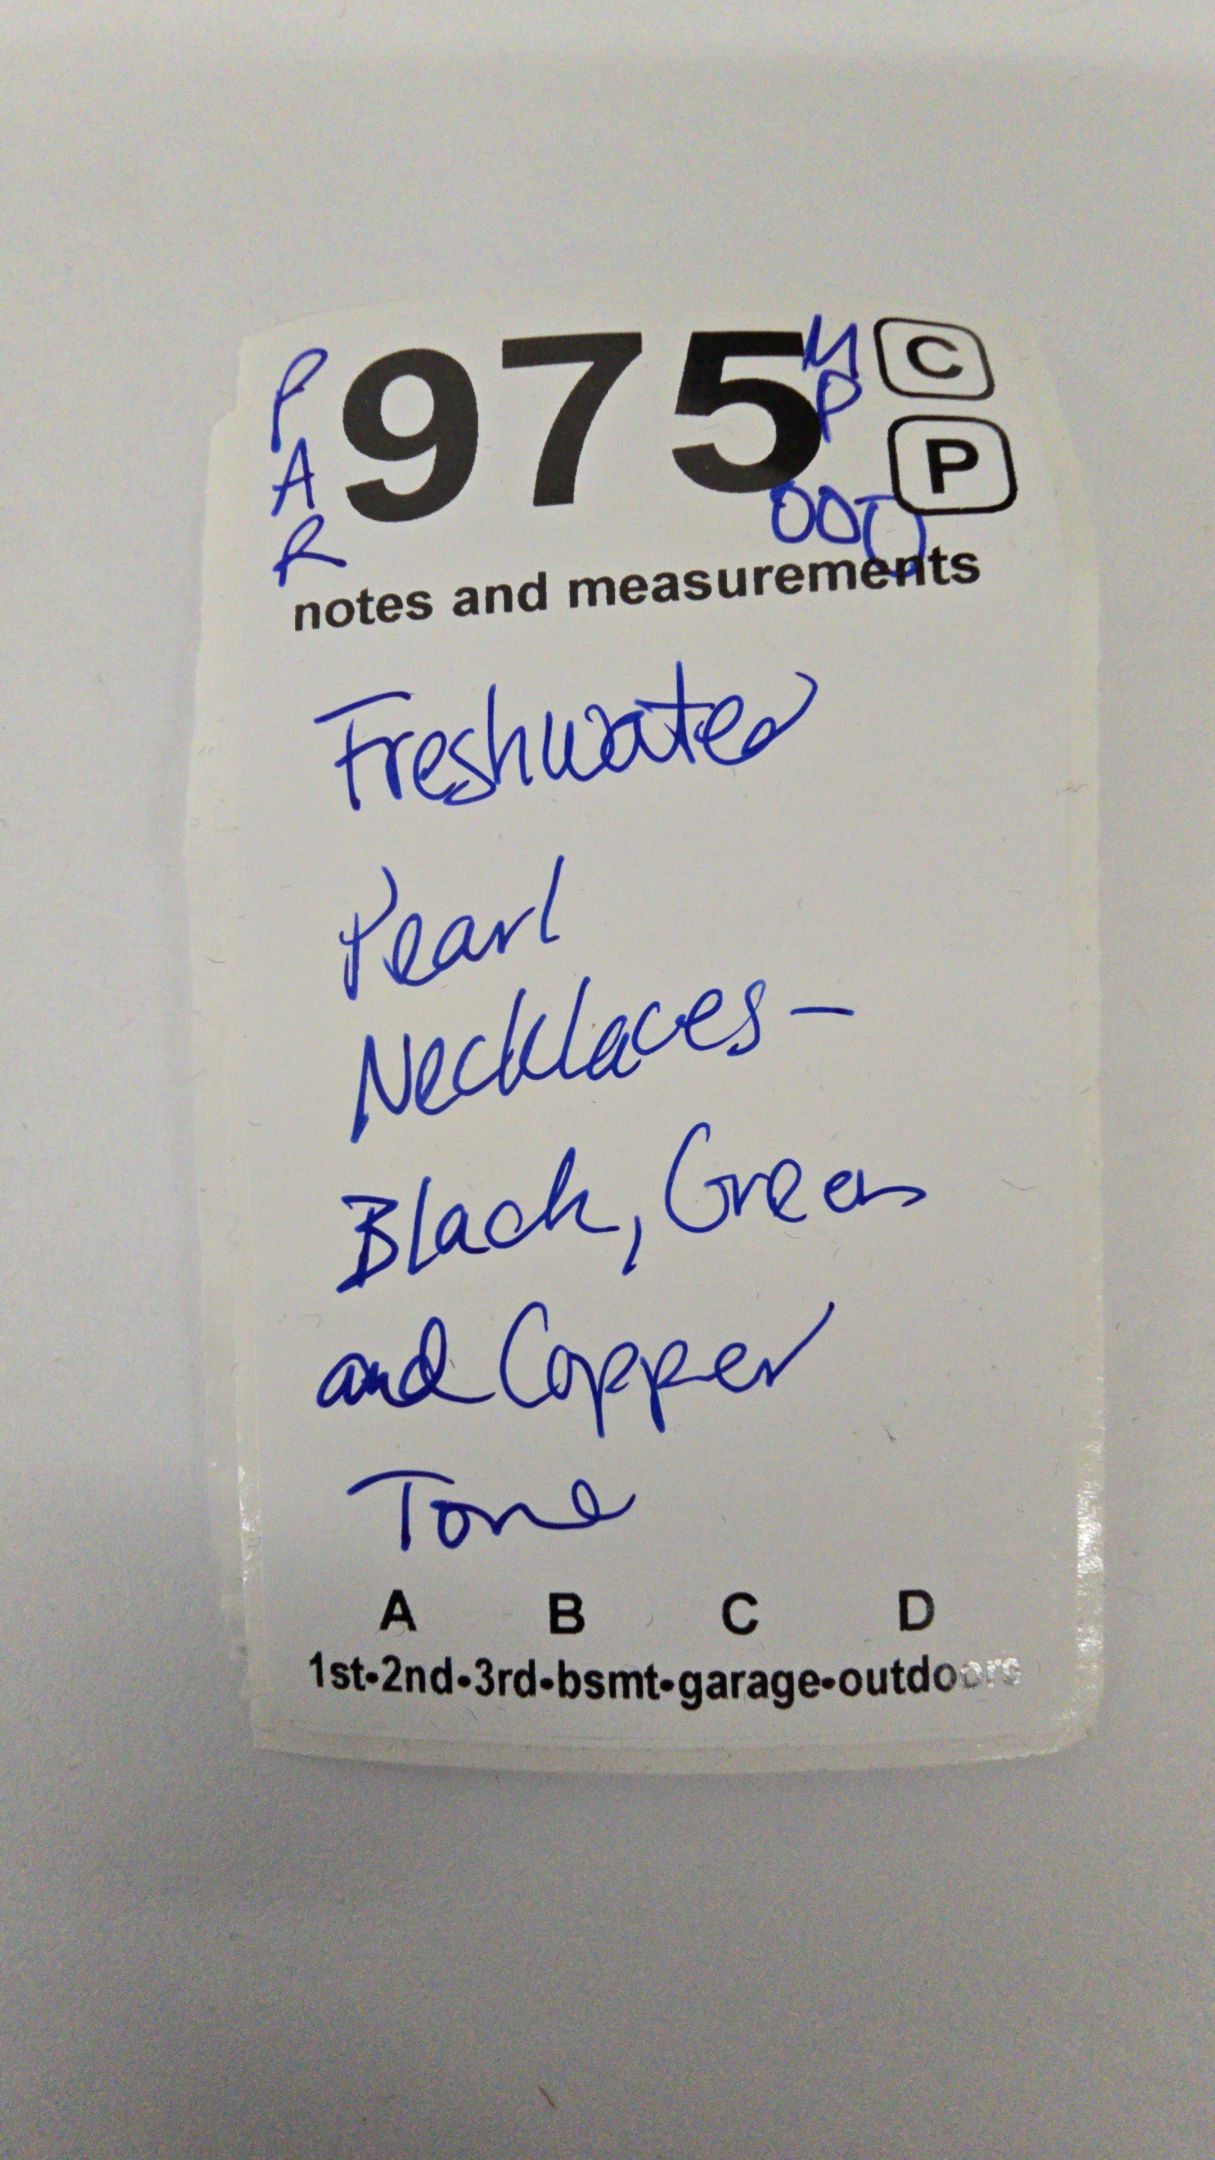 PAR 975 MP C
P
000
notes and measurements
Freshwater
Pearl
Necklaces –
Black, Green
and Copper
Tone
A B C D
1st•2nd•3rd•bsmt•garage•outdoors